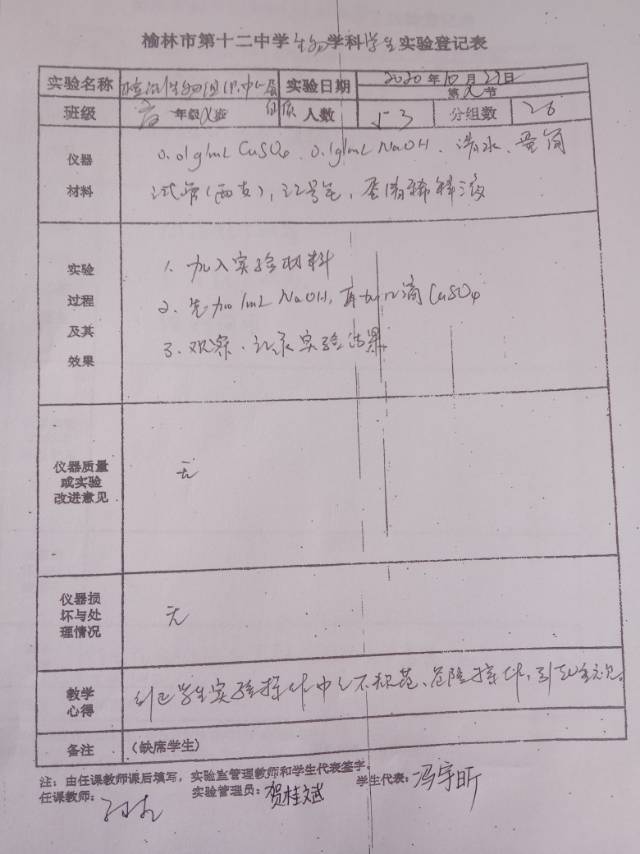 榆林市第十二中学生物学科学生实验登记表
实验名称 检测生物组织中的蛋白质 实验日期 2020年10月22日
班级 高 年级 班 人数 53 分组数 26
仪器材料 0.01g/mL CuSO4、0.1g/mL NaOH、清水、量筒
试管(两支),记号笔,蛋清稀释液
实验过程及其效果
1、加入实验材料
2、先加1mL NaOH,再加 滴CuSO4
3、观察、记录实验结果
仪器质量或实验改进意见 无
仪器损坏与处理情况 无
教学心得 纠正学生实验操作中的不规范、危险操作,
备注 (缺席学生)
注:由任课教师课后填写,实验室管理教师和学生代表签字。
任课教师: 实验管理员:贺桂斌 学生代表:冯宇昕